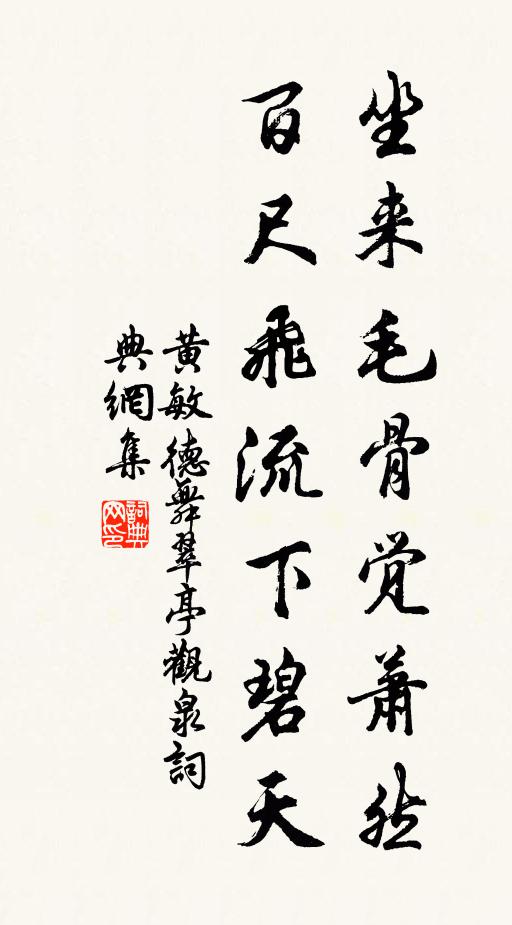 坐来毛骨觉萧然
百尺飛流下碧天
黄敏德舞翠亭觀泉詞
典網集
詞典
网印